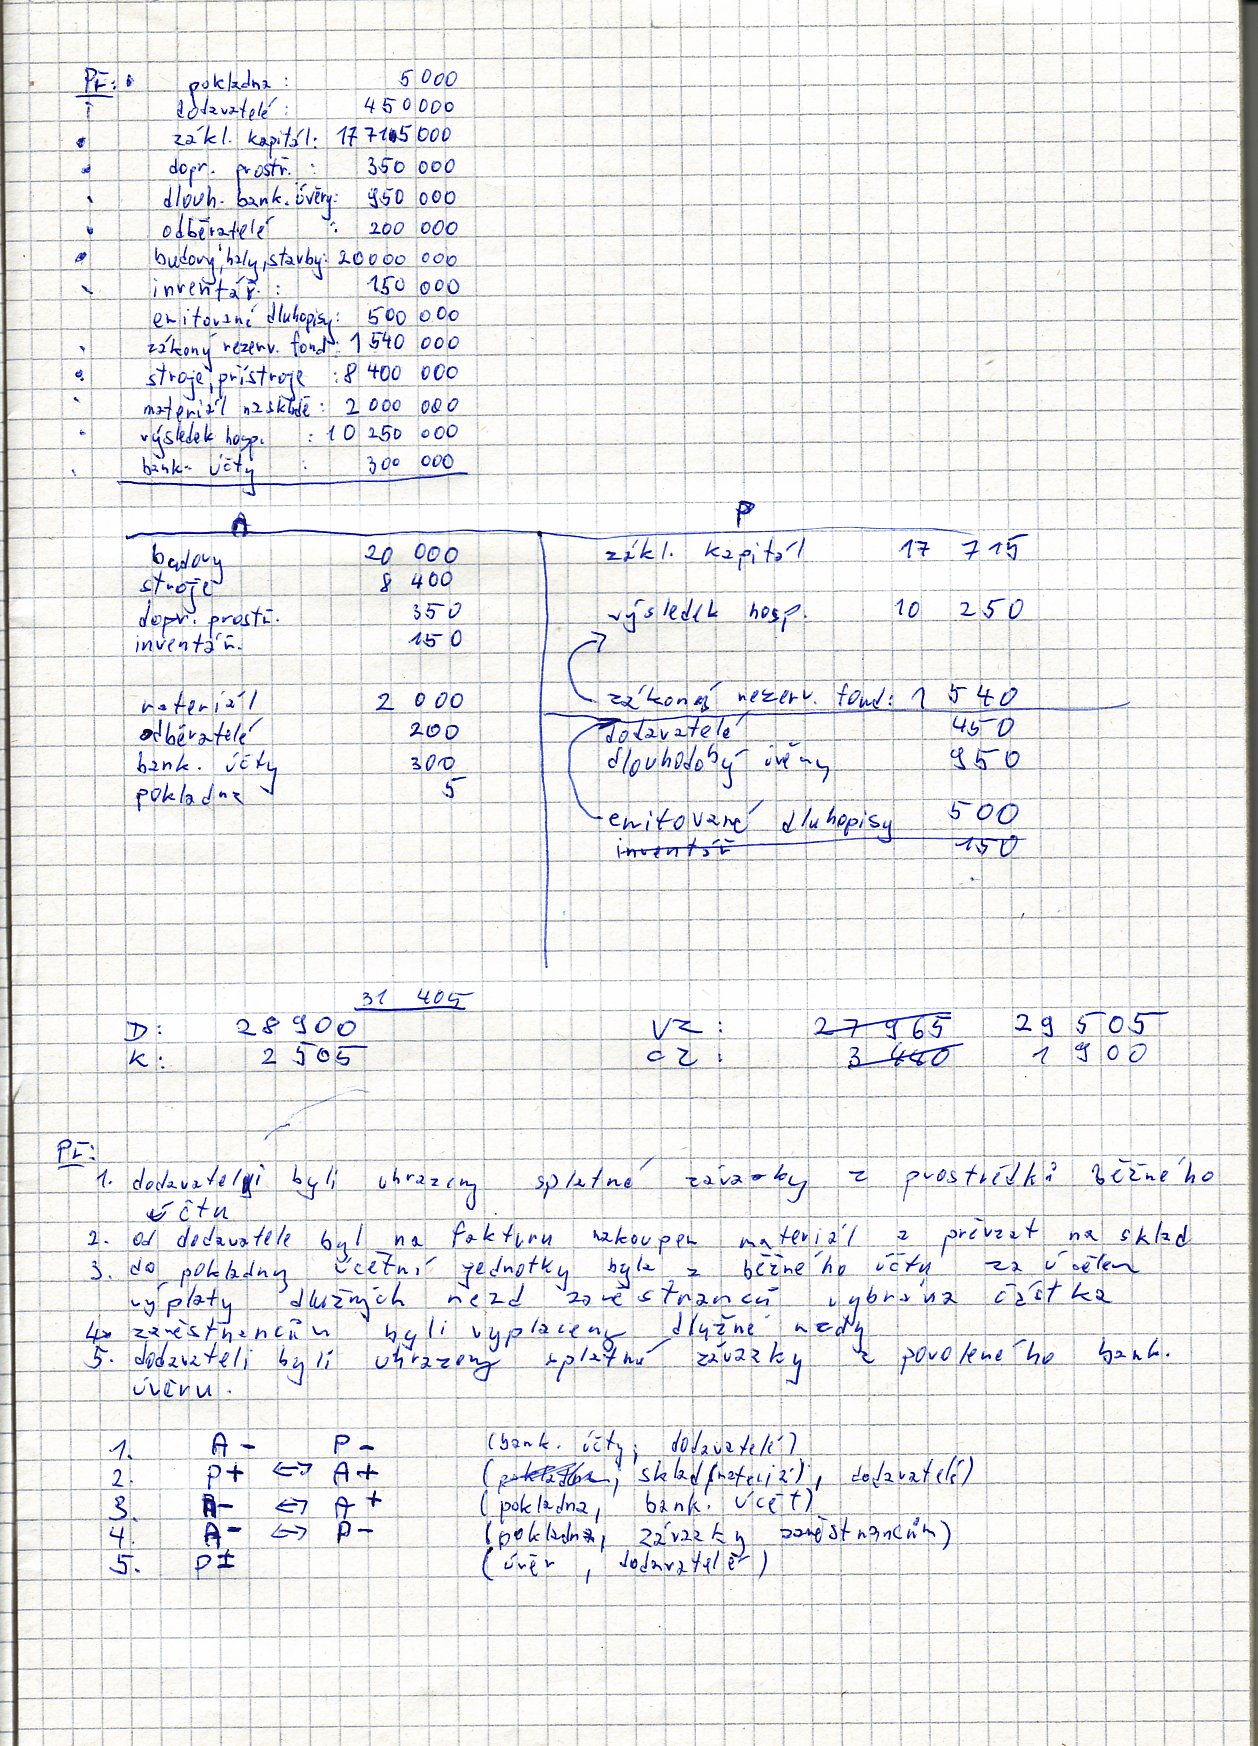 Př:
pokladna : 5 000
dodavatelé : 450 000
zákl. kapitál : 17 715 000
dopr. prostř. : 350 000
dlouh. bank. úvěry : 950 000
odběratelé : 200 000
budovy, haly, stavby : 20 000 000
inventář : 150 000
emitované dluhopisy : 500 000
zákoný rezerv. fond : 1 540 000
stroje, přístroje : 8 400 000
materiál na skladě : 2 000 000
výsledek hosp. : 10 250 000
bank. účty : 300 000
A P
budovy 20 000 zákl. kapitál 17 715
stroje 8 400
dopr. prostř. 350 výsledek hosp. 10 250
inventář. 150
materiál 2 000 zákoný rezerv. fond: 1 540
odběratelé 200 dodavatelé 450
bank. účty 300 dlouhodobý úvěry 950
pokladna 5
emitované dluhopisy 500
inventář 150
31 405
D: 28 900 VZ: 27 965 29 505
K: 2 505 CZ: 3 440 1 900
Př:
1. dodavateli byli uhrazeny splatné závazky z prostředků běžného
účtu
2. od dodavatele byl na fakturu nakoupen materiál a převzat na sklad
3. do pokladny účetní jednotky byla z běžného účtu za účelem
výplaty dlužných mezd zaměstnanců vybrána částka
4. zaměstnancům byli vyplaceny dlužné mzdy
5. dodavateli byli uhrazeny splatné závazky z povoleného bank.
úvěru.
1. A- P- (bank. účty, dodavatelé)
2. P+ ↔ A+ (pokladna, sklad (materiál), dodavatelé)
3. A- ↔ A+ (pokladna, bank. účet)
4. A- ↔ P- (pokladna, závazky zaměstnancům)
5. P± (úvěr, dodavatelé)